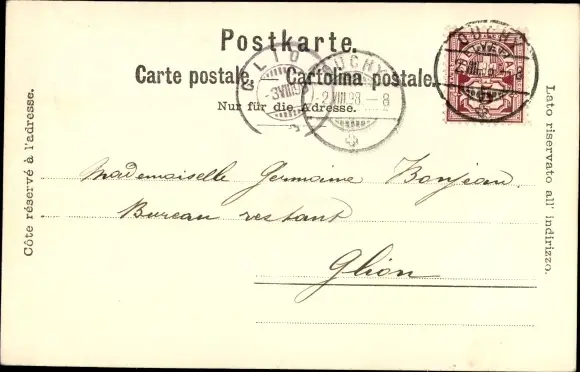 Postkarte.
Carte postale. — Cartolina postale.
Nur für die Adresse.
Côte réservé à l'adresse.
Lato riservato all' indirizzo.
OUCHY
2 VIII.98 — 8
3 VIII 98
OUCHY
VIII.98 — 8
Mademoiselle Germaine Bonjean.
Bureau restant
Glion